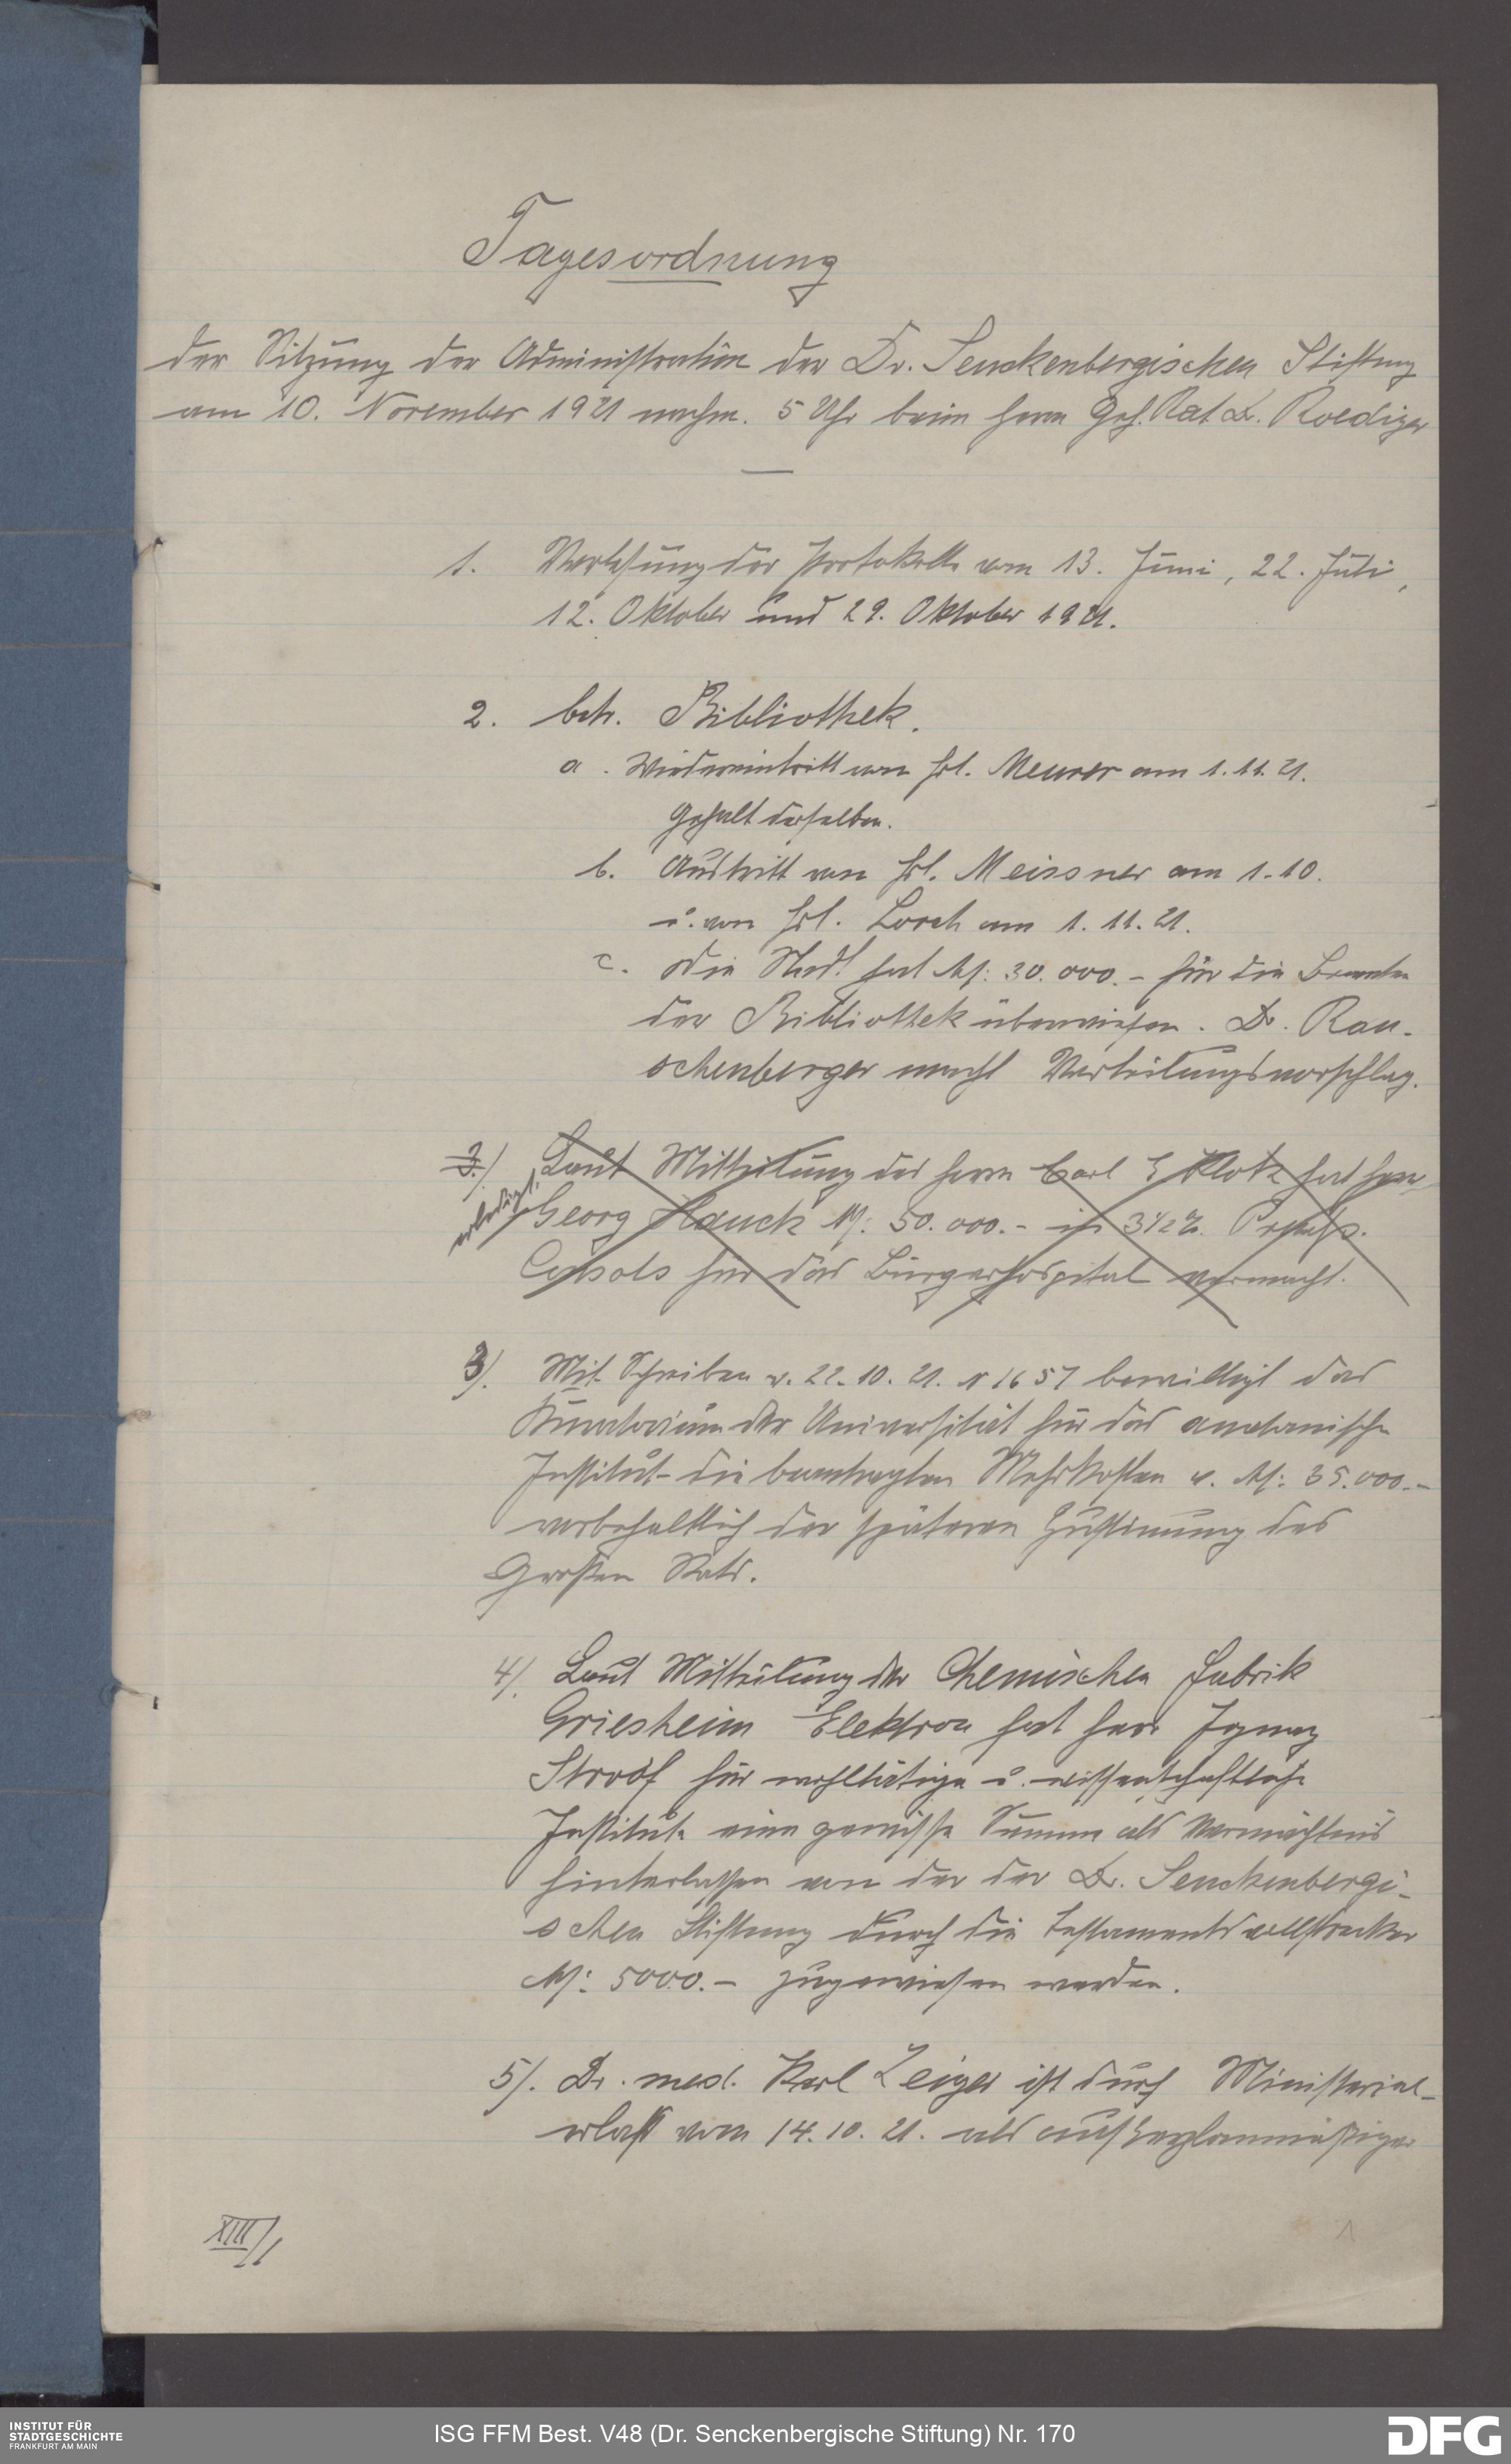 Tagesordnung
der Sitzung der Administration der Dr. Senckenbergischen Stiftung
am 10. November 1921 nachm. 5 Uhr beim Herrn Geh. Rat Dr. Roediger
1. Verlesung der Protokolle vom 13. Juni, 22. Juli,
12. Oktober und 29. Oktober 1921.
2. betr. Bibliothek.
a. Wiedereintritt von Frl. Meurer am 1.11.21.
Gehalt derselben.
b. Austritt von Frl. Meissner am 1.10.
u. von Frl. Lorch am 1.11.21.
c. Die Stadt hat M: 30.000.- für die Beamten
der Bibliothek überwiesen. Dr. Rau-
schenberger macht Verteilungsvorschlag.
3.) Laut Mitteilung des Herrn Carl E Klotz hat Herr
erledigt.
Georg Hauck M: 50.000.- in 3½% Preuss.
Consols für das Bürgerhospital vermacht.
3). Mit Schreiben v. 22.10.21. N 1657 bewilligt das
Kuratorium der Universität für das anatomische
Institut die beantragten Mehrkosten v. M: 35.000.-
vorbehaltlich der späteren Zustimmung des
Großen Rats.
4). Laut Mitteilung der Chemischen Fabrik
Griesheim Elektron hat Herr Ignaz
Stroof für wohltätige u. wissenschaftliche
Institute eine gewisse Summe als Vermächtnis
hinterlassen von der der Dr. Senckenbergi-
schen Stiftung durch die Testamentsvollstrecker
M: 5000.- zugewiesen werden.
5). Dr. med. Karl Zeiger ist durch Ministerial-
erlaß vom 14.10.21. als außerplanmäßiger
XIII/1
1
INSTITUT FÜR
STADTGESCHICHTE
FRANKFURT AM MAIN
ISG FFM Best. V48 (Dr. Senckenbergische Stiftung) Nr. 170
DFG